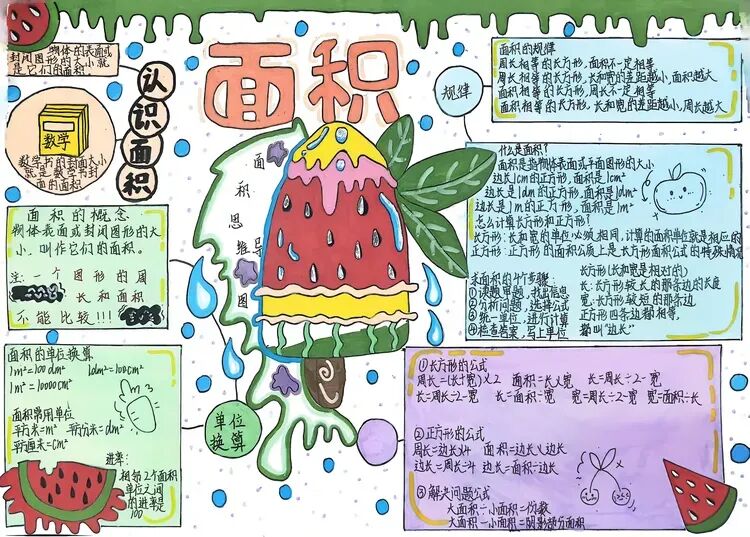 面积
物体的表面或
封闭图形的大小就
是它们的面积.
认识面积
数学
数学书的封面大小
就是数学书封
面的面积
面积的概念
物体表面或封闭图形的大
小,叫作它们的面积。
注:一个图形的周
长和面积
不能比较!!!
面积的单位换算
1m²=100dm² 1dm²=100cm²
1m²=10000cm²
面积常用单位
平方米=m² 平方分米=dm²
平方厘米=cm²
进率:
相邻2个面积
单位之间
的进率是
100
单位
换算
面积思维导图
规律
面积的规律
周长相等的长方形,面积不一定相等
周长相等的长方形,长和宽的差距越小,面积越大
面积相等的长方形,周长不一定相等
面积相等的长方形,长和宽的差距越小,周长越大
什么是面积?
面积是指物体表面或平面图形的大小
边长1cm的正方形,面积是1cm²
边长是1dm的正方形,面积是1dm²
边长是1m的正方形,面积是1m²
怎么计算长方形和正方形?
长方形:长和宽的单位必须相同,计算的面积单位就是相应的
正方形:正方形的面积公质上是长方形面积公式的特殊情况
求面积的4个步骤:
①读题审题,找出信息
②分析问题,选择公式
③统一单位,进行计算
④检查答案,写上单位
长方形(长和宽是相对的)
长:长方形较长的那条边的长度
宽:长方形较短的那条边
正方形四条边都相等,
都叫"边长"
①长方形的公式
周长=(长+宽)×2 面积=长×宽 长=周长÷2-宽
长=周长÷2-宽 长=面积÷宽 宽=周长÷2-长 宽=面积÷长
②正方形的公式
周长=边长×4 面积=边长×边长
边长=周长÷4 边长=面积÷边长
③解决问题公式
大面积÷小面积=份数
大面积-小面积=阴影部分面积